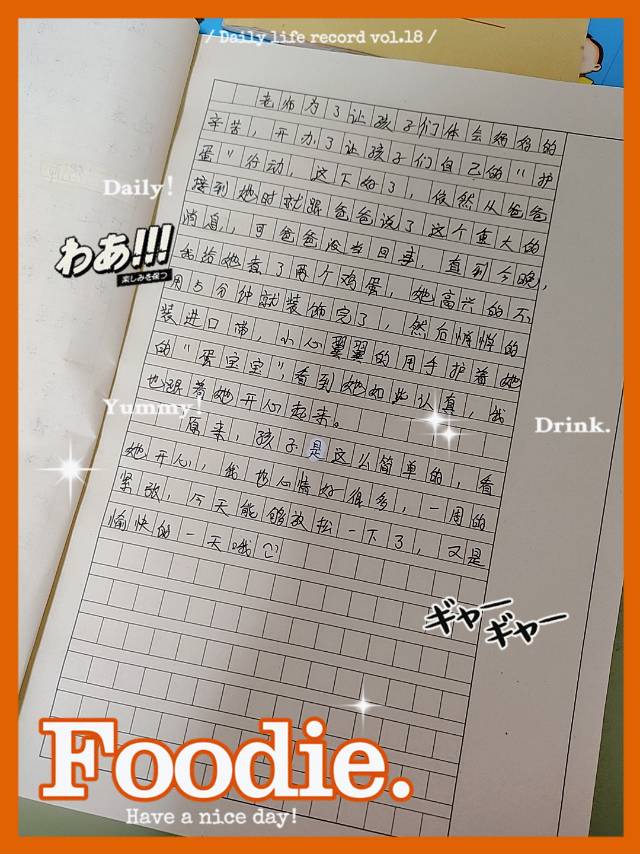 / Daily life record vol.18 /
老师为了让孩子们体会妈妈的
辛苦，开办了让孩子们自己的"护
蛋"行动，这下好了，依然从爸爸
接到她时就跟爸爸说了这个重大的
消息，可爸爸没当回事，直到今晚，
我给她煮了两个鸡蛋，她高兴的不
用5分钟就装饰完了，然后悄悄的
装进口袋，小心翼翼的用手护着她
的"蛋宝宝"看到她如此认真，我
也跟着她开心起来。
原来，孩子是这么简单的，看
她开心，我也心情好很多，一周的
紧张，今天能够放松一下了，又是
愉快的一天哦
Daily!
わあ!!!
楽しみを保つ
Yummy!
Drink.
ギャー
ギャー
Foodie.
Have a nice day!